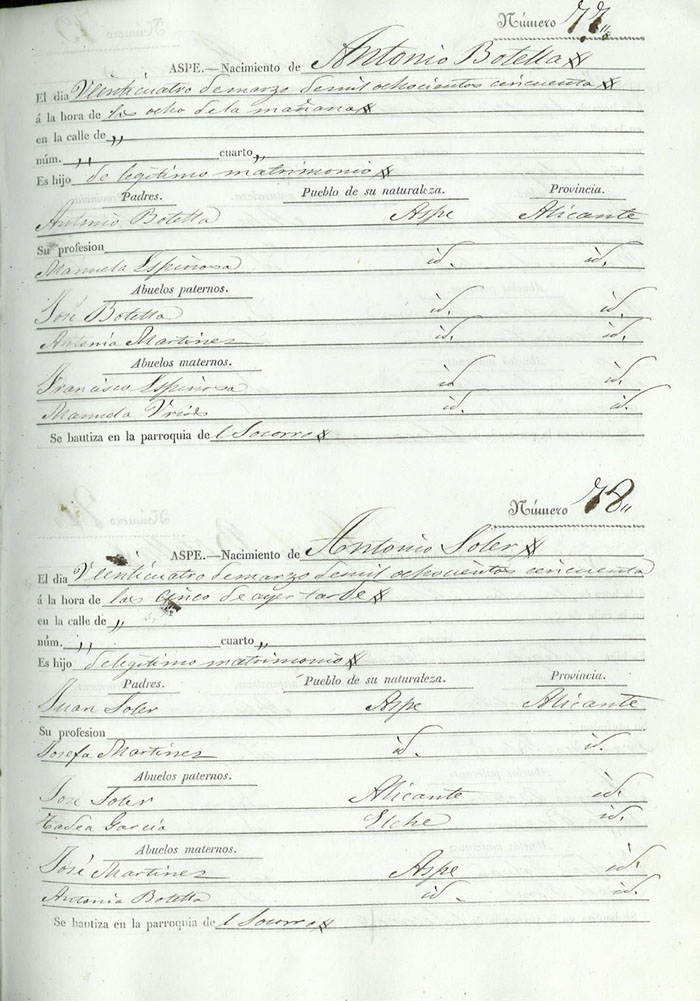 Número 77"
ASPE.—Nacimiento de Antonio Botella
El dia Veinticuatro de marzo de mil ochocientos cincuenta
á la hora de las ocho de la mañana
en la calle de "
núm. " cuarto "
Es hijo de legitimo matrimonio
Padres. Pueblo de su naturaleza. Provincia.
Antonio Botella Aspe Alicante
Su profesion
Manuela Espinosa id. id.
Abuelos paternos.
José Botella id. id.
Antonia Martinez id. id.
Abuelos maternos.
Francisco Espinosa id. id.
Manuela id. id.
Se bautiza en la parroquia del Socorro
Número 78"
ASPE.—Nacimiento de Antonio Soler
El dia Veinticuatro de marzo de mil ochocientos cincuenta
á la hora de las cinco de ayer tarde
en la calle de "
núm. " cuarto "
Es hijo de legitimo matrimonio
Padres. Pueblo de su naturaleza. Provincia.
Juan Soler Aspe Alicante
Su profesion
Josefa Martinez id. id.
Abuelos paternos.
José Soler Alicante id.
Tadea Garcia Elche id.
Abuelos maternos.
José Martinez Aspe id.
Antonia Botella id. id.
Se bautiza en la parroquia del Socorro